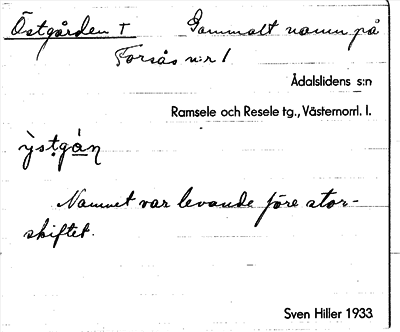 Östgården T Gammalt namn på
Forsås n:r 1
Ådalslidens s:n
Ramsele och Resele tg., Västernorrl. l.
ỳstgàn̥
Namnet var levande före stor-
skiftet.
Sven Hiller 1933